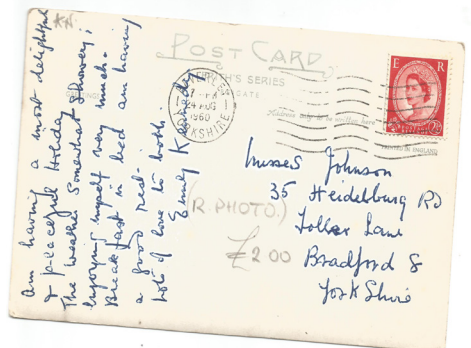 KN.
am having a most delightful
& peaceful Holiday
The weather Somewhat Showery,
enjoying myself very much.
Breakfast in bed am having
a good rest.
Lots of love to both.
Emily Kennedy.
POST CARD
'S SERIES
GATE
Address only to be written here
24 AUG
1960
RKSHIRE
E R
PRINTED IN ENGLAND
Misses Johnson
35 Heidelburg RD
Toller Lane
Bradford 8
Yorkshire
(R. PHOTO.)
£2 00